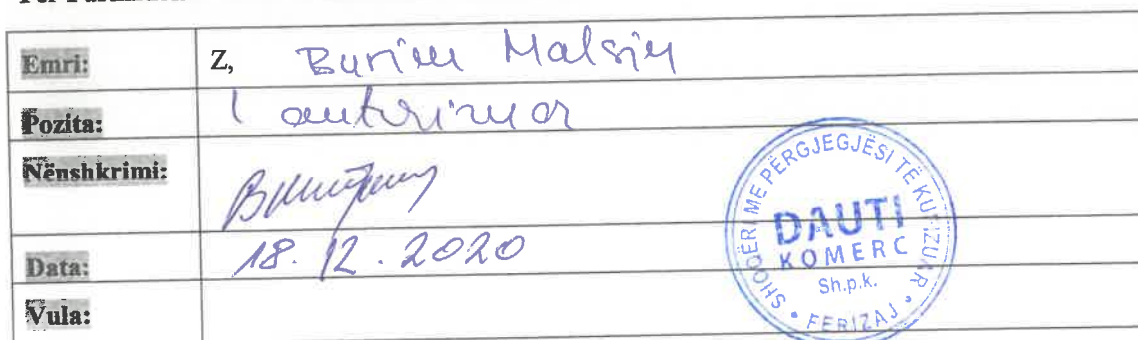 Emri: Z, Burim Malsiu
Pozita: I autorizuar
Nënshkrimi:
Data: 18.12.2020
Vula:
SHOQËRI ME PËRGJEGJËSI TË KUFIZUAR
DAUTI
KOMERC
Sh.p.k.
• FERIZAJ •